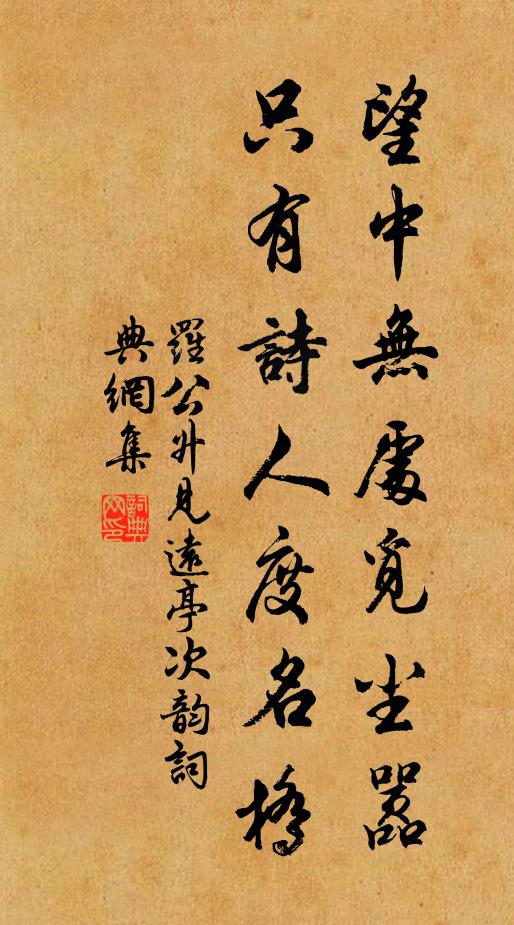 望中無處覓尘囂
只有詩人度名橋
羅公升見遠亭次韵詞
典網集
詞典
网印